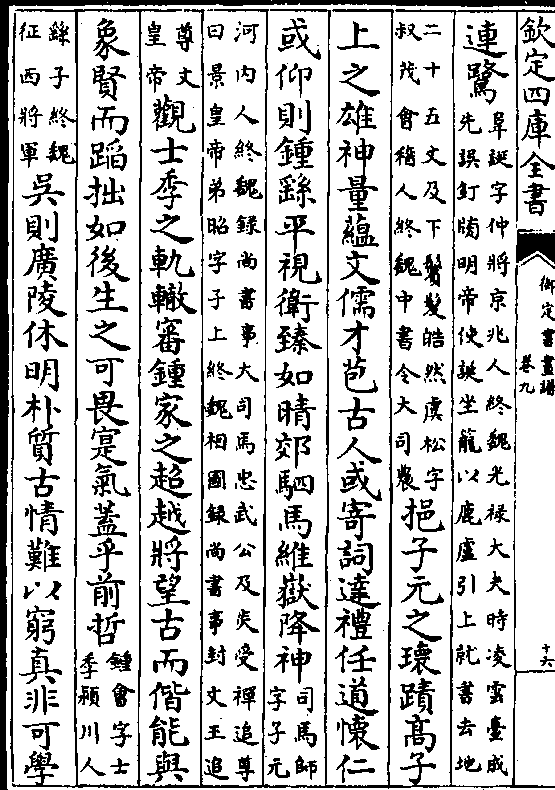 欽定四庫全書
御定書畫譜
卷九
十六
連鷺
韋誕字仲將京兆人終魏光禄大夫時凌雲臺成
先誤釘牓明帝使誕坐籠以鹿盧引上就書去地
二十五丈及下鬢髮皓然虞松字
叔茂會稽人終魏中書令大司農
挹子元之瓌蹟高子
上之雄神量蘊文儒才苞古人或寄詞達禮任道懷仁
或仰則鍾繇平視衛臻如晴郊駟馬維嶽降神
司馬師
字子元
河内人終魏録尚書事大司馬忠武公及炎受禪追尊
曰景皇帝弟昭字子上終魏相國録尚書事封文王追
尊文
皇帝
觀士季之軌轍審鍾家之超越將望古而偕能與
象賢而蹈拙如後生之可畏寔氣蓋乎前哲
鍾會字士
季潁川人
繇子終魏
征西將軍
吳則廣陵休明朴質古情難以窮真非可學